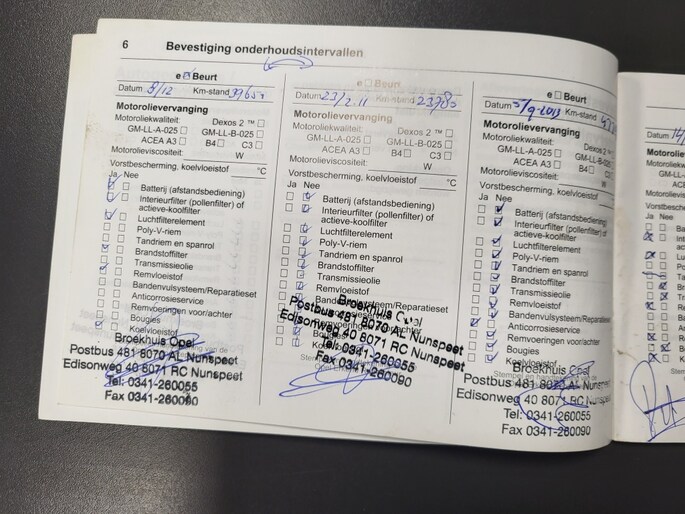 6 Bevestiging onderhoudsintervallen
e Beurt
Datum 8/12 Km-stand
Motorolievervanging
Motoroliekwaliteit: Dexos 2 ™
GM-LL-A-025 GM-LL-B-025
ACEA A3 B4 C3
Motorolieviscositeit: W
Vorstbescherming, koelvloeistof °C
Ja Nee
Batterij (afstandsbediening)
Interieurfilter (pollenfilter) of
actieve-koolfilter
Luchtfilterelement
Poly-V-riem
Tandriem en spanrol
Brandstoffilter
Transmissieolie
Remvloeistof
Bandenvulsysteem/Reparatieset
Anticorrosieservice
Remvoeringen voor/achter
Bougies
Koelvloeistof
Broekhuis Opel
Postbus 481 8070 AL Nunspeet
Edisonweg 40 8071 RC Nunspeet
Tel: 0341-260055
Fax 0341-260090
e Beurt
Datum 23/2 11 Km-stand
Motorolievervanging
Motoroliekwaliteit: Dexos 2 ™
GM-LL-A-025 GM-LL-B-025
ACEA A3 B4 C3
Motorolieviscositeit: W
Vorstbescherming, koelvloeistof °C
Ja Nee
Batterij (afstandsbediening)
Interieurfilter (pollenfilter) of
actieve-koolfilter
Luchtfilterelement
Poly-V-riem
Tandriem en spanrol
Brandstoffilter
Transmissieolie
Remvloeistof
Bandenvulsysteem/Reparatieset
Broekhuis Opel
Postbus 481 8070 AL Nunspeet
Edisonweg 40 8071 RC Nunspeet
Tel: 0341-260055
Fax 0341-260090
e Beurt
Datum 5/9-2013 Km-stand
Motorolievervanging
Motoroliekwaliteit: Dexos 2
GM-LL-A-025 GM-LL-B-025
ACEA A3 B4 C3
Motorolieviscositeit: W
Vorstbescherming, koelvloeistof °C
Ja Nee
Batterij (afstandsbediening)
Interieurfilter (pollenfilter) of
actieve-koolfilter
Luchtfilterelement
Poly-V-riem
Tandriem en spanrol
Brandstoffilter
Transmissieolie
Remvloeistof
Bandenvulsysteem/Reparatieset
Anticorrosieservice
Remvoeringen voor/achter
Bougies
Koelvloeistof
Broekhuis Opel
Postbus 481 8070 AL Nunspeet
Edisonweg 40 8071 RC Nunspeet
Tel: 0341-260055
Fax 0341-260090
Datum
Ja Nee